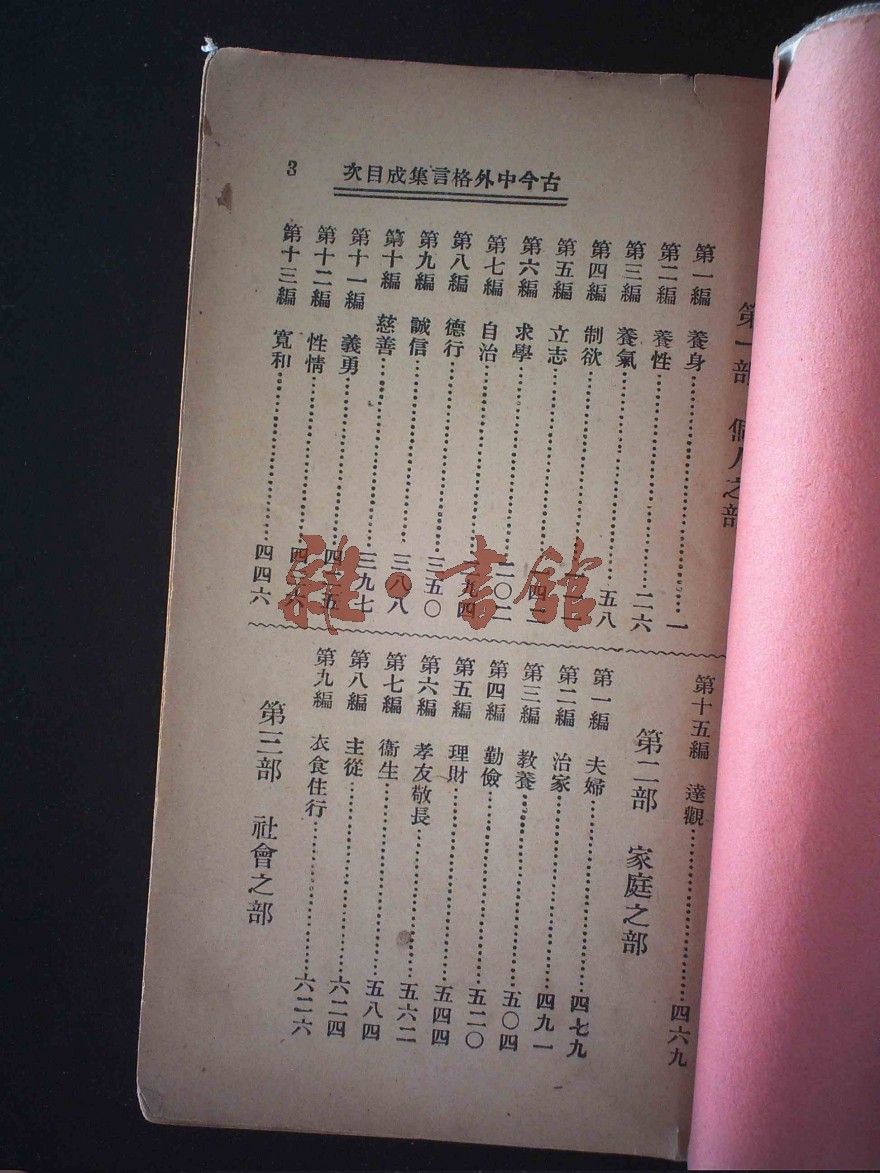 古今中外格言集成目次 3
第一部 個人之部
第一編 養身……一
第二編 養性……二六
第三編 養氣……五八
第四編 制欲……
第五編 立志……
第六編 求學……二〇二
第七編 自治……九四
第八編 德行……三五〇
第九編 誠信……三八八
第十編 慈善……三九七
第十一編 義勇……
第十二編 性情……
第十三編 寬和……四四六
第十五編 達觀……四六九
第二部 家庭之部
第一編 夫婦……四七九
第二編 治家……四九一
第三編 教養……五〇四
第四編 勤儉……五二〇
第五編 理財……五四四
第六編 孝友敬長……五六二
第七編 衞生……五八四
第八編 主從……六二四
第九編 衣食住行……六二六
第三部 社會之部
雜·書館